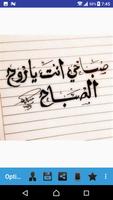 7:45
صباحي انت يا روح
الصباح
Opti